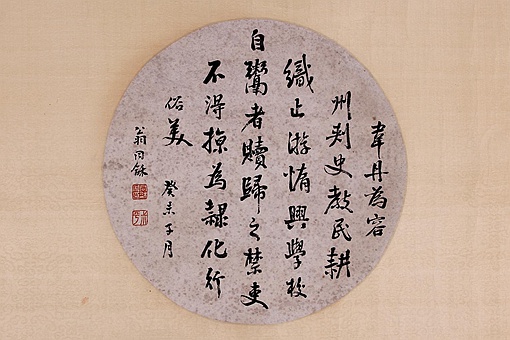 韋丹為容
州刺史教民耕
織止游惰興學校
自鬻者贖歸之禁吏
不得掠為隸化行
俗美
癸未子月
翁同龢